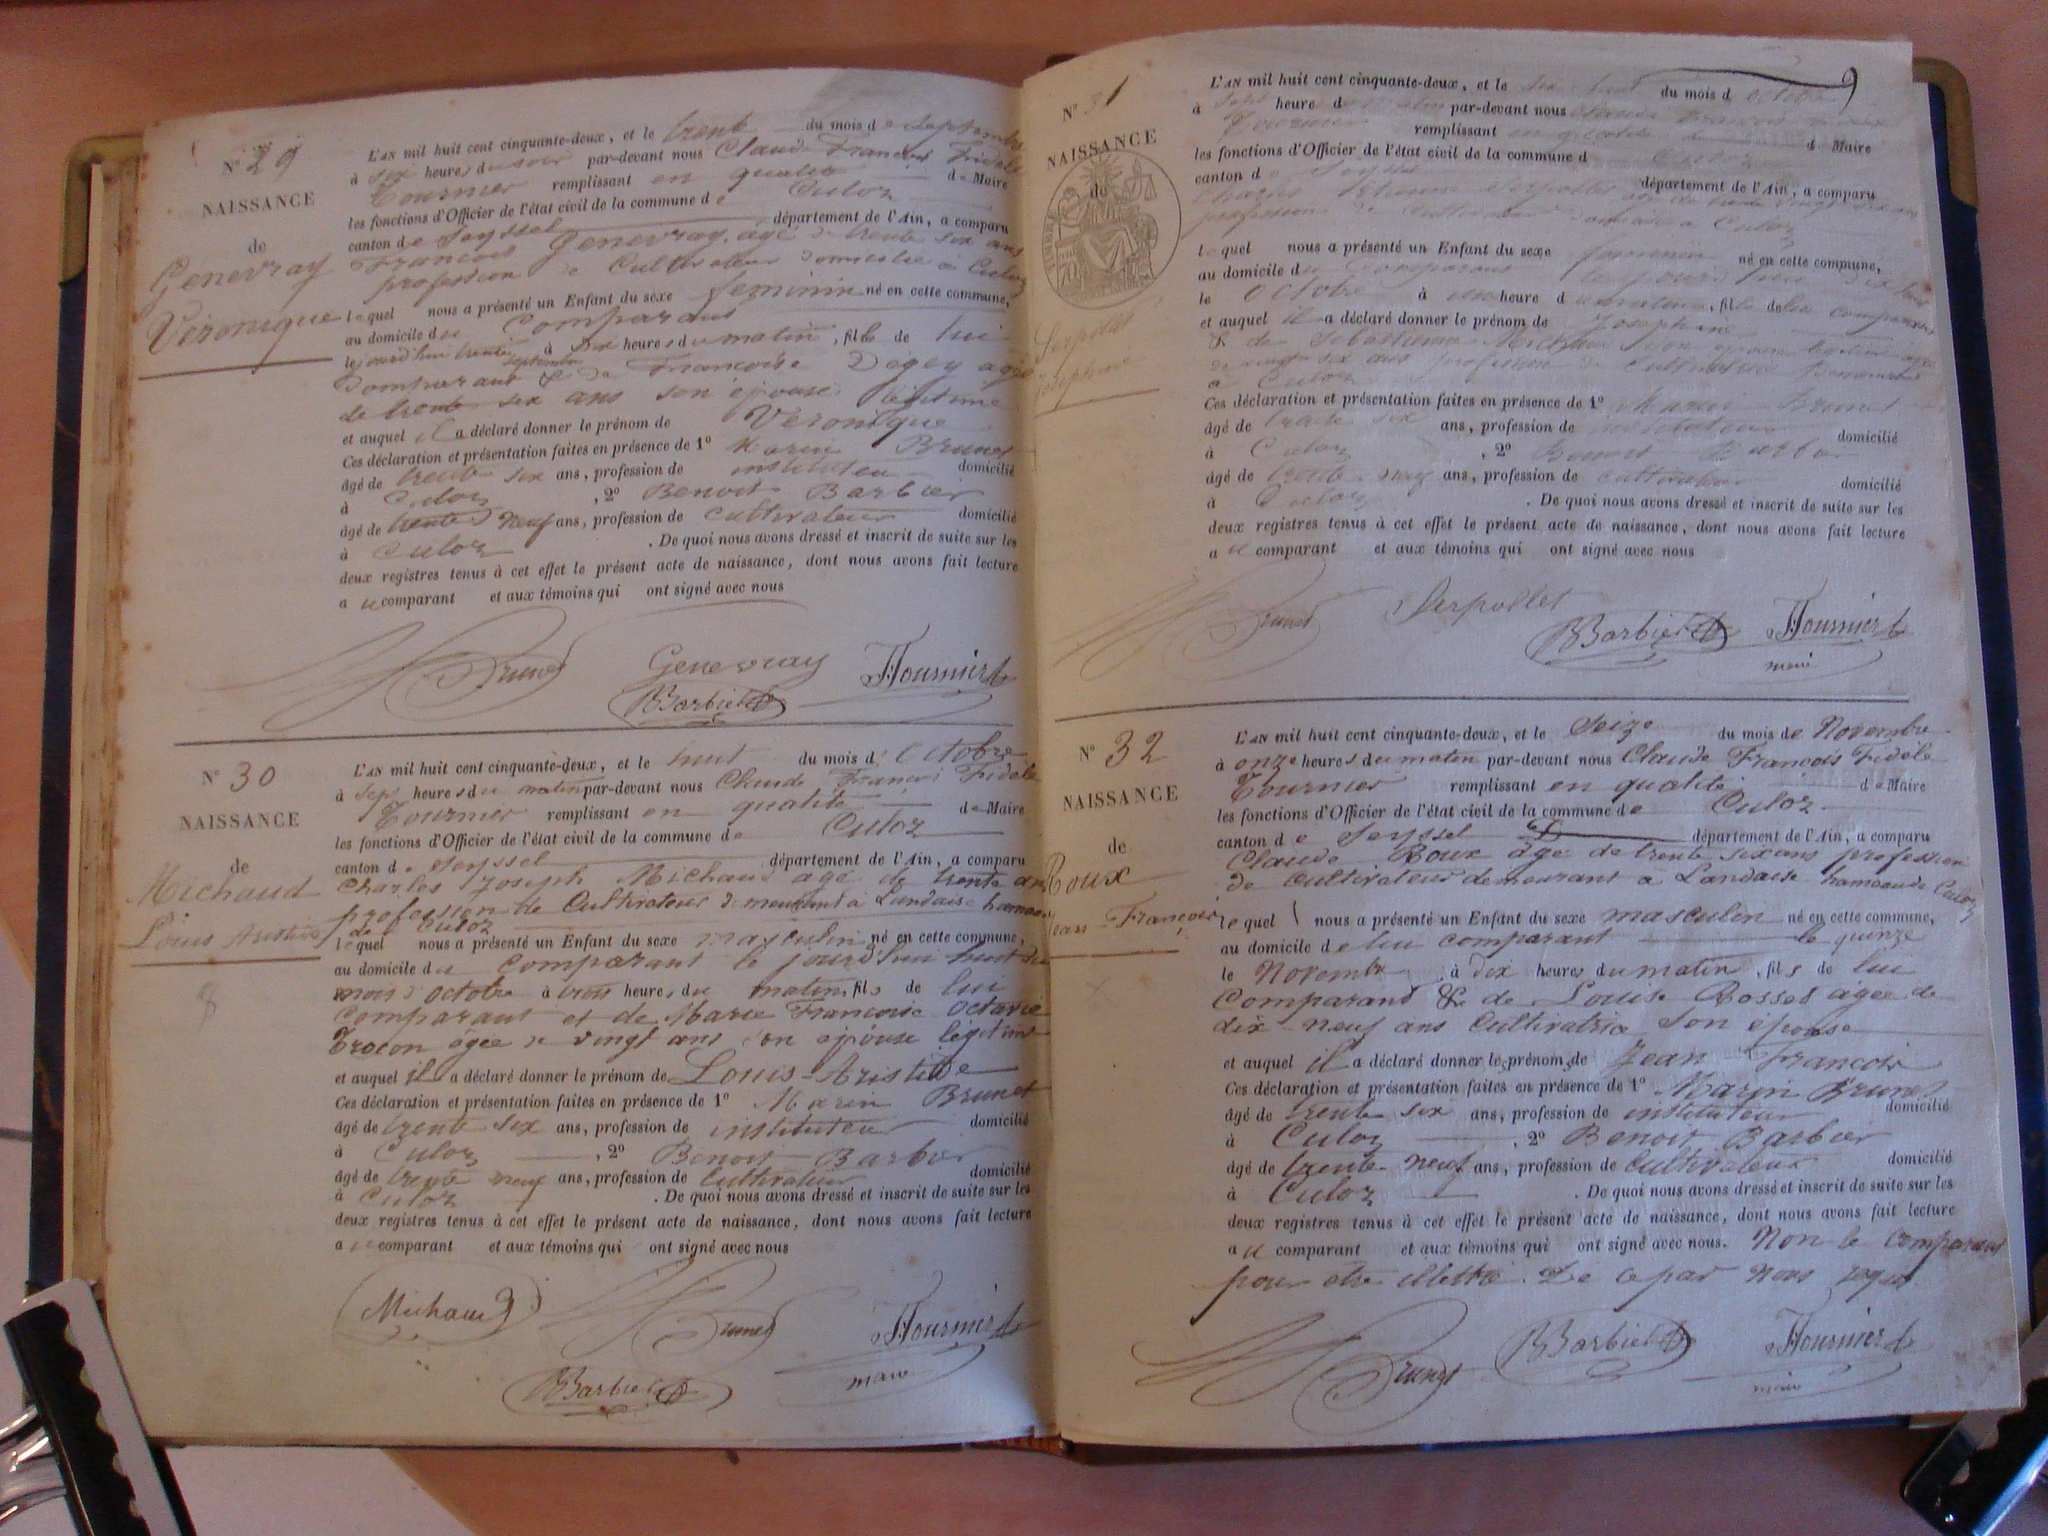 N° 29
NAISSANCE
de
Genevray
Véronique
L'AN mil huit cent cinquante-deux, et le trente du mois de Septembre
à six heures du soir par-devant nous Claude François Fidèle
Tournier remplissant en qualité de Maire
les fonctions d'Officier de l'état civil de la commune de Culoz
canton de Seyssel département de l'Ain, a comparu
François Genevray, agé de trente six ans
profession de Cultivateur domicilié à Culoz
lequel nous a présenté un Enfant du sexe feminin né en cette commune,
au domicile du Comparant
le jourd'hui trente septembre à six heures du matin, fille de lui
Comparant & de Françoise Dagey agée
de trente six ans son épouse légitime
et auquel il a déclaré donner le prénom de Véronique
Ces déclaration et présentation faites en présence de 1° Marin Brunet
âgé de trente six ans, profession de instituteur domicilié
à Culoz, 2° Benoit Barbier
âgé de trente neuf ans, profession de Cultivateur domicilié
à Culoz. De quoi nous avons dressé et inscrit de suite sur les
deux registres tenus à cet effet le présent acte de naissance, dont nous avons fait lecture
au comparant et aux témoins qui ont signé avec nous
Brunet Genevray Tournier
Barbier B
N° 30
NAISSANCE
de
Michaud
Louis Aristide
L'AN mil huit cent cinquante-deux, et le huit du mois d'Octobre
à sept heures du matin par-devant nous Claude François Fidèle
Tournier remplissant en qualité de Maire
les fonctions d'Officier de l'état civil de la commune de Culoz
canton de Seyssel département de l'Ain, a comparu
Charles Joseph Michaud agé de trente ans
profession de Cultivateur demeurant à Landaise hameau
de Culoz
lequel nous a présenté un Enfant du sexe masculin né en cette commune,
au domicile du comparant le jourd'hui huit du
mois d'octobre à trois heures du matin, fils de lui
comparant et de Marie Françoise Octavie
âgée de vingt ans son épouse légitime
et auquel il a déclaré donner le prénom de Louis-Aristide
Ces déclaration et présentation faites en présence de 1° Marin Brunet
âgé de trente six ans, profession de instituteur domicilié
à Culoz, 2° Benoit Barbier
âgé de trente neuf ans, profession de Cultivateur domicilié
à Culoz. De quoi nous avons dressé et inscrit de suite sur les
deux registres tenus à cet effet le présent acte de naissance, dont nous avons fait lecture
au comparant et aux témoins qui ont signé avec nous
Michaud Brunet Tournier
Barbier B maire
N° 31
NAISSANCE
de
Serpollet
Joséphine
L'AN mil huit cent cinquante-deux, et le dix huit du mois d'octobre
à sept heure du matin par-devant nous Claude François
Tournier remplissant en qualité de Maire
les fonctions d'Officier de l'état civil de la commune d Culoz
canton de Seyssel département de l'Ain, a comparu
Serpollet
profession de Cultivateur domicilié à Culoz
lequel nous a présenté un Enfant du sexe feminin né en cette commune,
au domicile du Comparant
le octobre à heure du matin, fille de lui comparant
et auquel il a déclaré donner le prénom de Joséphine
& de Michaud son épouse légitime
six ans profession de cultivatrice
a Culoz
Ces déclaration et présentation faites en présence de 1° Marin Brunet
âgé de trente six ans, profession de instituteur domicilié
à Culoz, 2° Benoit Barbier
âgé de trente neuf ans, profession de cultivateur domicilié
à Culoz. De quoi nous avons dressé et inscrit de suite sur les
deux registres tenus à cet effet le présent acte de naissance, dont nous avons fait lecture
au comparant et aux témoins qui ont signé avec nous
Brunet Serpollet Barbier B Tournier
maire
N° 32
NAISSANCE
de
Roux
Jean-François
L'AN mil huit cent cinquante-deux, et le Seize du mois de Novembre
à onze heures du matin par-devant nous Claude François Fidèle
Tournier remplissant en qualité de Maire
les fonctions d'Officier de l'état civil de la commune de Culoz
canton de Seyssel département de l'Ain, a comparu
Claude Roux âgé de trente six ans profession
de Cultivateur demeurant à Landaise hameau de Culoz
lequel nous a présenté un Enfant du sexe masculin né en cette commune,
au domicile de lui comparant le quinze
le Novembre, à dix heures du matin, fils de lui
Comparant & de Louise Rosset âgée de
dix-neuf ans Cultivatrice son épouse
et auquel il a déclaré donner les prénoms de Jean François
Ces déclaration et présentation faites en présence de 1° Marin Brunet
âgé de trente six ans, profession de instituteur domicilié
à Culoz, 2° Benoit Barbier
âgé de trente neuf ans, profession de Cultivateur domicilié
à Culoz. De quoi nous avons dressé et inscrit de suite sur les
deux registres tenus à cet effet le présent acte de naissance, dont nous avons fait lecture
au comparant et aux témoins qui ont signé avec nous. Non le comparant
pour être illettré. De ce par nous requis
Brunet Barbier B Tournier
maire